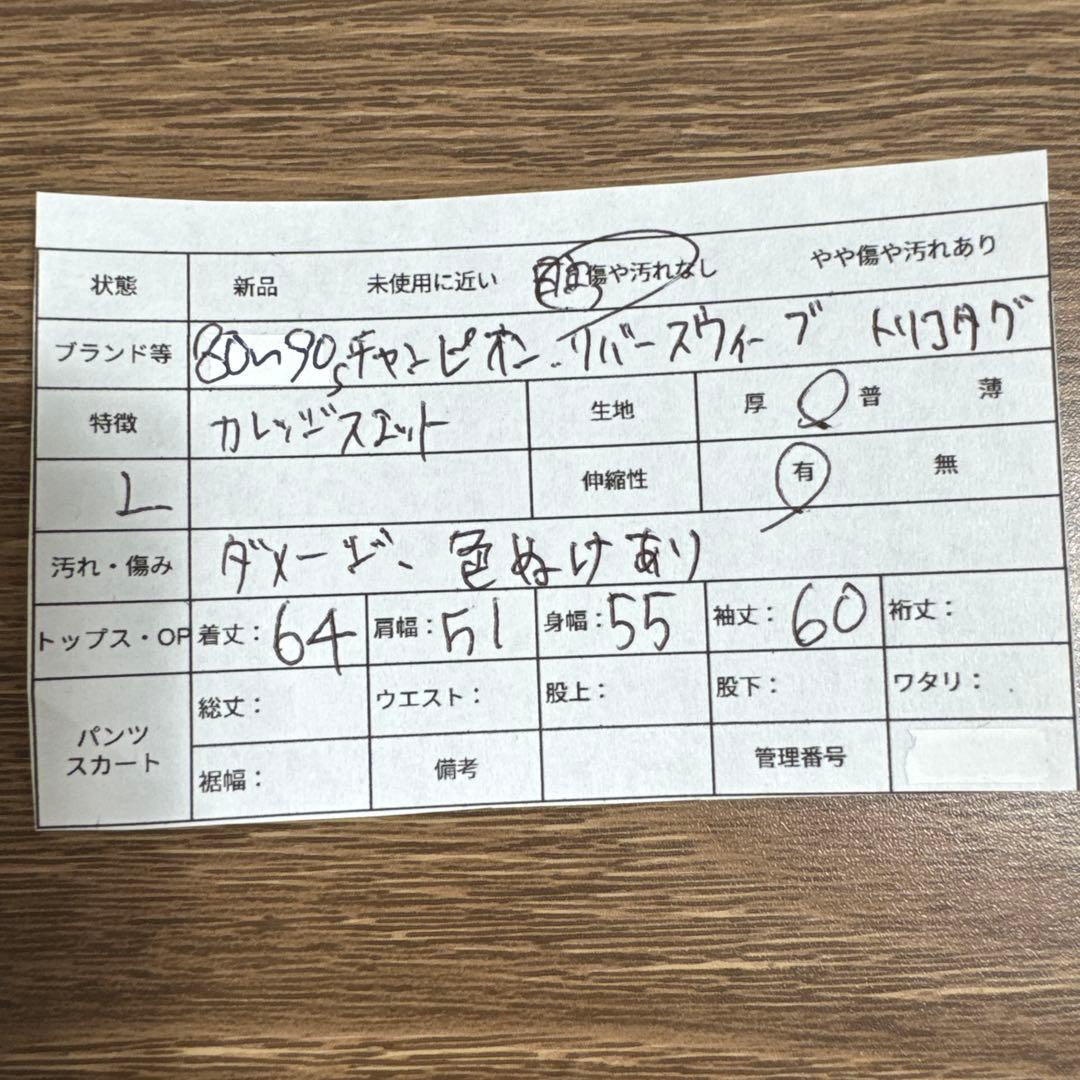 状態 新品 未使用に近い 傷や汚れなし やや傷や汚れあり
ブランド等 80〜90sチャンピオン リバースウィーブ トリコタグ
特徴 カレッジスエット 生地 厚 普 薄
L 伸縮性 有 無
汚れ・傷み ダメージ、色ぬけあり
トップス・OP 着丈：64 肩幅：51 身幅：55 袖丈：60 裄丈：
パンツ スカート 総丈： ウエスト： 股上： 股下： ワタリ：
裾幅： 備考 管理番号